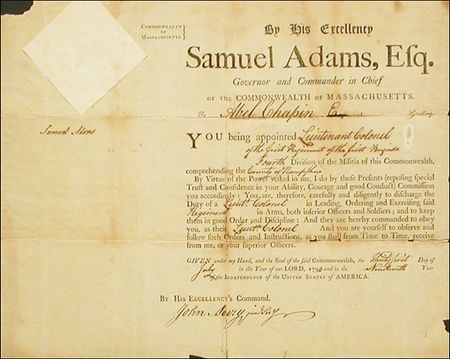 COMMONWEALTH OF
MASSACHUSETTS.
By His Excellency
Samuel Adams, Esq.
Governor and Commander in Chief
OF THE COMMONWEALTH OF MASSACHUSETTS.
To Abel Chapin Greeting.
Samuel Adams
YOU being appointed Lieutenant Colonel
of the first Regiment of the first Brigade
Fourth Division of the Militia of this Commonwealth,
comprehending the County of Hampshire
By Virtue of the Power vested in me, I do by these Presents (reposing special
Trust and Confidence in your Ability, Courage and good Conduct) Commission
you accordingly: You are, therefore, carefully and diligently to discharge the
Duty of a Lieut. Colonel in Leading, Ordering and Exercising said
Regiment in Arms, both inferior Officers and Soldiers; and to keep
them in good Order and Discipline: And they are hereby commanded to obey
you, as their Lieut. Colonel And you are yourself to observe and
follow such Orders and Instructions, as you shall from Time to Time, receive
from me, or your superior Officers.
GIVEN under my Hand, and the Seal of the said Commonwealth, the Thirty first Day of
July in the Year of our LORD, 1794 and in the Nineteenth Year
of the INDEPENDENCE of the UNITED STATES of AMERICA.
By HIS EXCELLENCY'S Command,
John Avery jun Secy